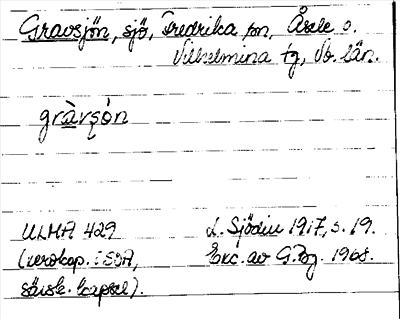 Gravsjön, sjö, Fredrika sn, Åsele o.
Vilhelmina tg, Vb. län.
gràvșòn
ULMA 429
(xerokop. i SOA,
särsk. kapsel).
L. Sjödin 1917, s. 19.
Exc. av G. Pg. 1968.